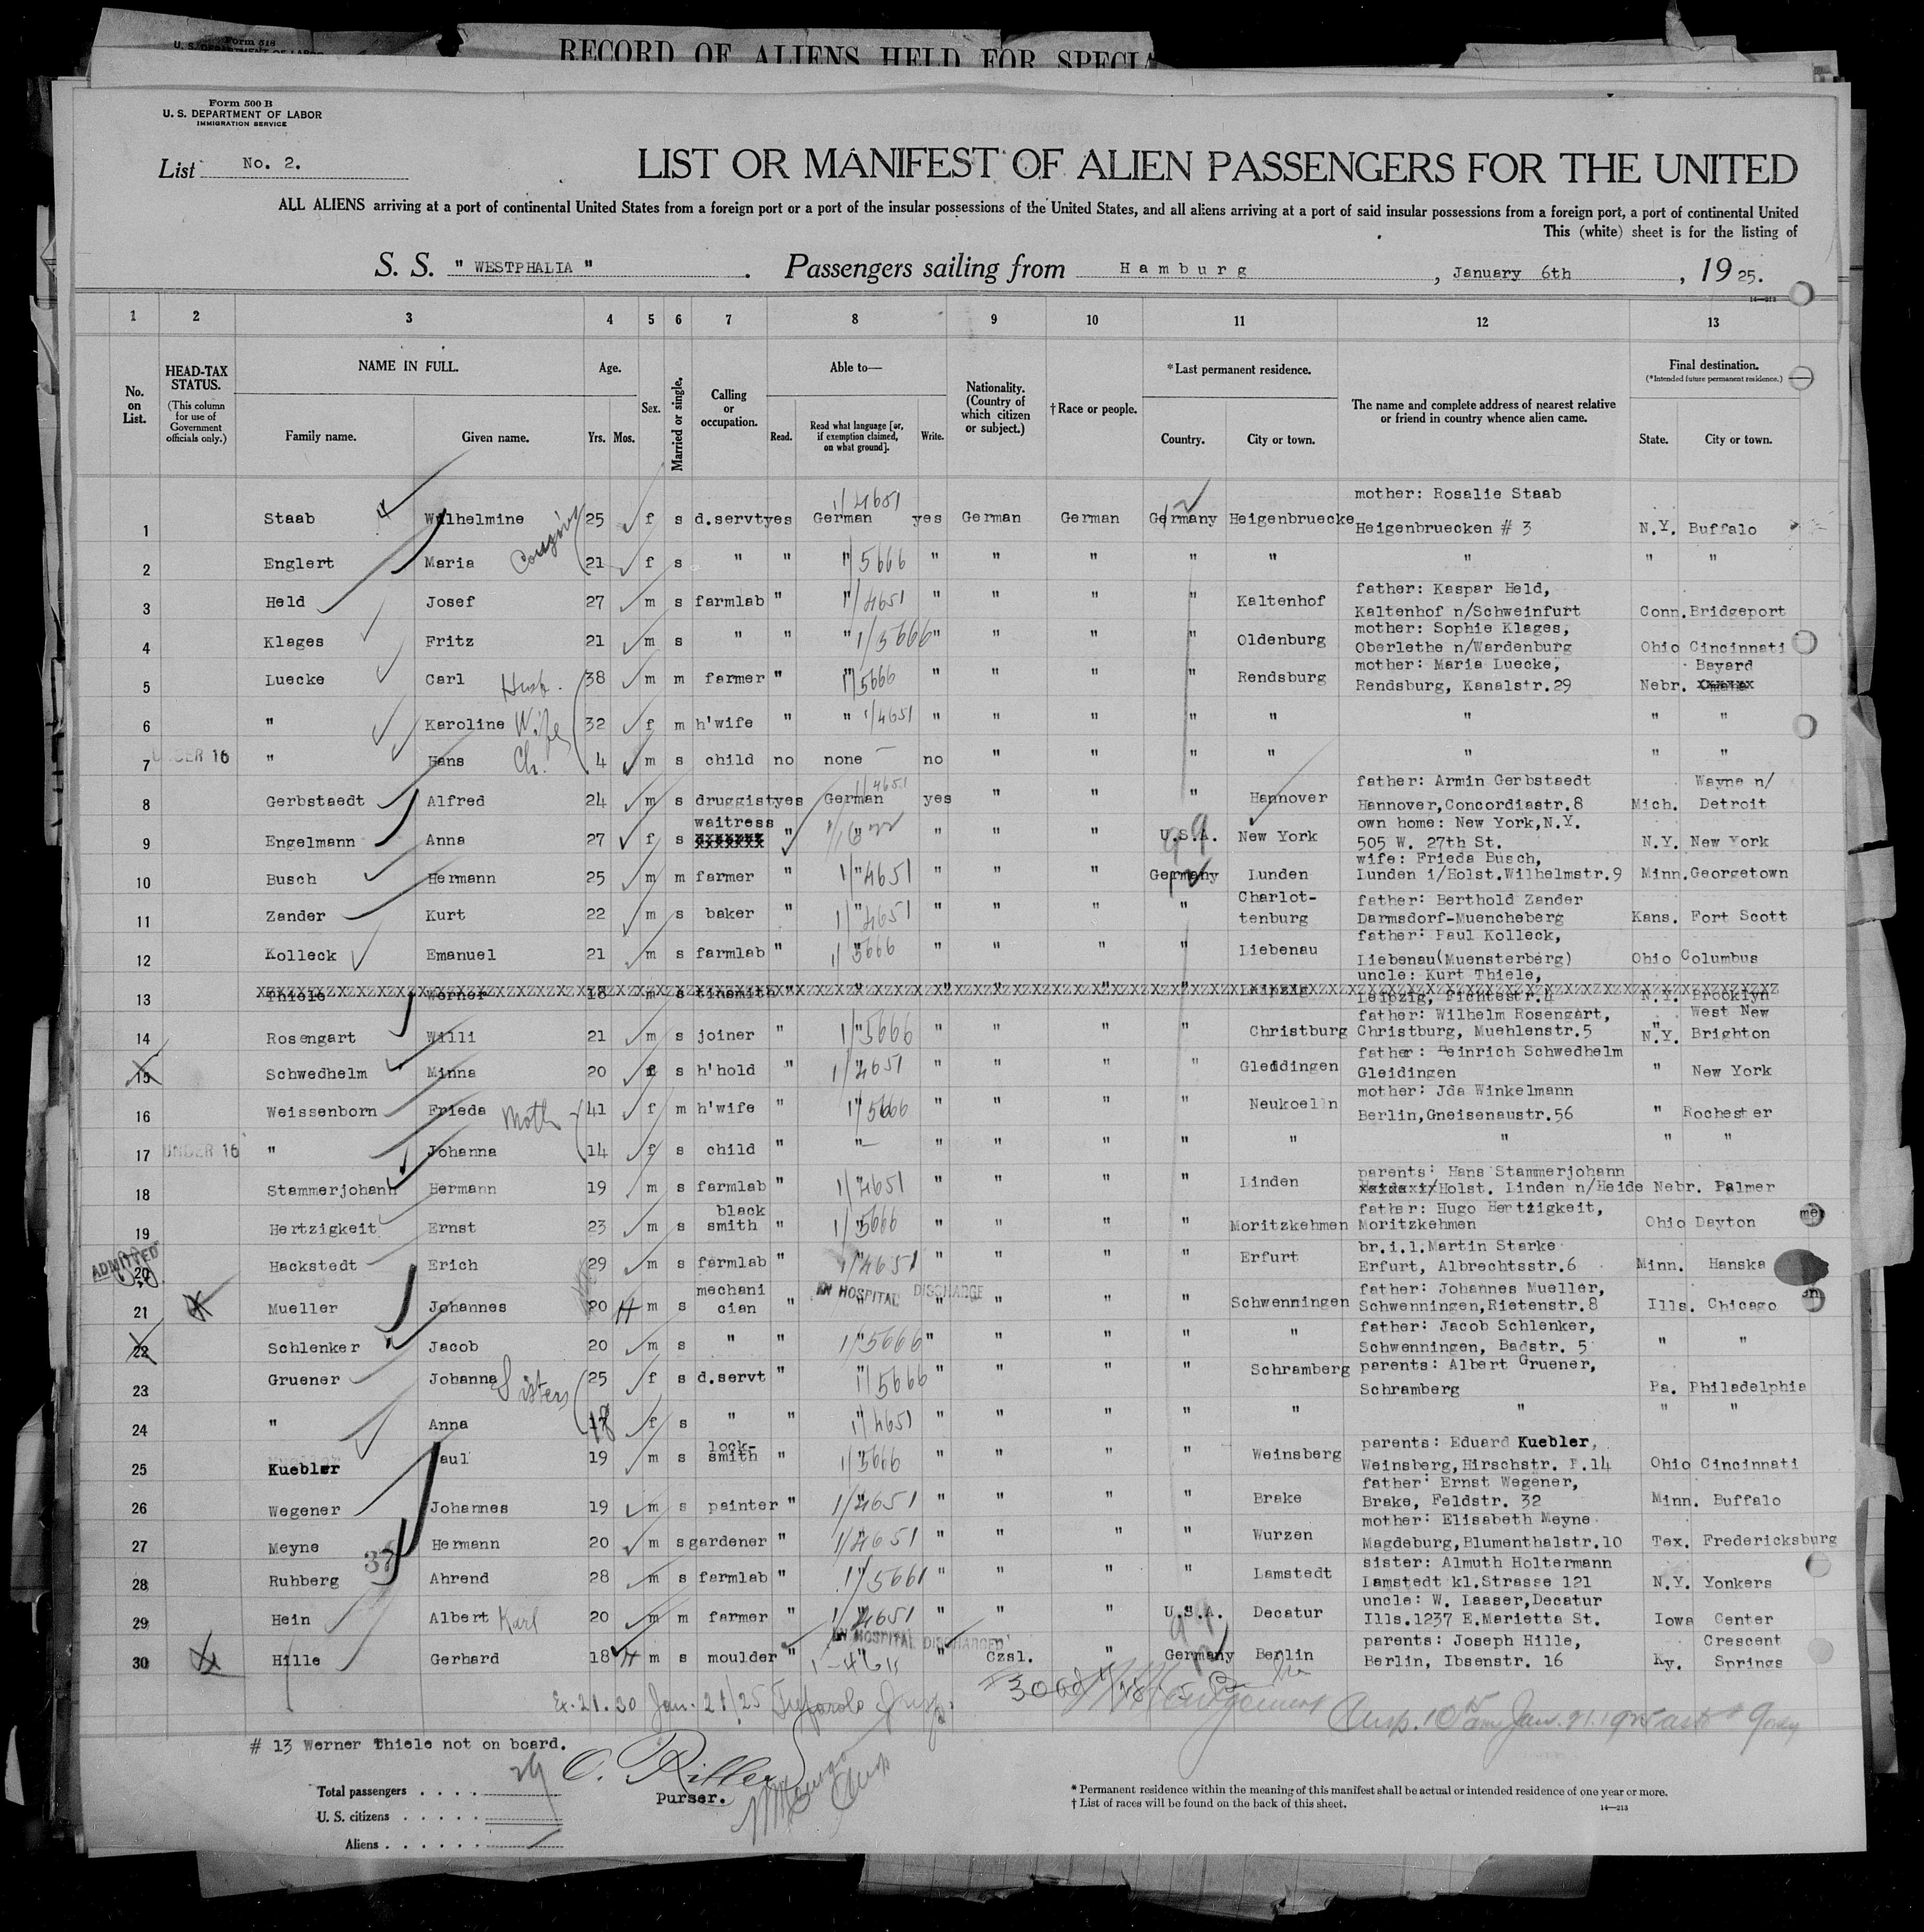 Form 518
RECORD OF ALIENS HELD FOR SPECIA
Form 500 B
U. S. DEPARTMENT OF LABOR
IMMIGRATION SERVICE
List No. 2.
LIST OR MANIFEST OF ALIEN PASSENGERS FOR THE UNITED
ALL ALIENS arriving at a port of continental United States from a foreign port or a port of the insular possessions of the United States, and all aliens arriving at a port of said insular possessions from a foreign port, a port of continental United
This (white) sheet is for the listing of
S. S. " WESTPHALIA " . Passengers sailing from Hamburg , January 6th , 1925.
14—213
1 2 3 4 5 6 7 8 9 10 11 12 13
No. on List.
HEAD-TAX STATUS.
(This column for use of Government officials only.)
NAME IN FULL.
Family name. Given name.
Age.
Yrs. Mos.
Sex.
Married or single.
Calling or occupation.
Able to—
Read. Read what language [or, if exemption claimed, on what ground]. Write.
Nationality. (Country of which citizen or subject.)
† Race or people.
* Last permanent residence.
Country. City or town.
The name and complete address of nearest relative or friend in country whence alien came.
Final destination.
(* Intended future permanent residence.)
State. City or town.
mother: Rosalie Staab
1 Staab Wilhelmine 25 f s d.servt yes German 1/4651 yes German German Germany Heigenbruecke Heigenbruecken # 3 N.Y. Buffalo
Cousins
2 Englert Maria 21 f s " " " 1/5666 " " " " " " " "
father: Kaspar Held,
3 Held Josef 27 m s farmlab " " 1/4651 " " " " Kaltenhof Kaltenhof n/Schweinfurt Conn. Bridgeport
mother: Sophie Klages,
4 Klages Fritz 21 m s " " " 1/5666 " " " " Oldenburg Oberlethe n/Wardenburg Ohio Cincinnati
mother: Maria Luecke, Bayard
5 Luecke Carl Husb. 38 m m farmer " " 1/5666 " " " " Rendsburg Rendsburg, Kanalstr.29 Nebr.
6 " Karoline Wife 32 f m h'wife " " 1/4651 " " " " " " " "
7 UNDER 16 " Hans Ch. 4 m s child no none — no " " " " " " "
father: Armin Gerbstaedt Wayne n/
8 Gerbstaedt Alfred 24 m s druggist yes German 1/4651 yes " " " Hannover Hannover,Concordiastr.8 Mich. Detroit
waitress own home: New York,N.Y.
9 Engelmann Anna 27 f s xxxxxxx " " " " " U.S.A. New York 505 W. 27th St. N.Y. New York
wife: Frieda Busch,
10 Busch Hermann 25 m m farmer " " 1/4651 " " " Germany Lunden Lunden i/Holst.Wilhelmstr.9 Minn. Georgetown
Charlot- father: Berthold Zander
11 Zander Kurt 22 m s baker " " 1/4651 " " " " tenburg Darmsdorf-Muencheberg Kans. Fort Scott
father: Paul Kolleck,
12 Kolleck Emanuel 21 m s farmlab " " 1/5666 " " " " Liebenau Liebenau(Muensterberg) Ohio Columbus
uncle: Kurt Thiele,
13 Thiele Werner 18 m s tinsmith " " " " " " Leipzig Leipzig, Fichtestr.4 N.Y. Brooklyn
father: Wilhelm Rosengart, West New
14 Rosengart Willi 21 m s joiner " " 1/5666 " " " " Christburg Christburg, Muehlenstr.5 N.Y. Brighton
father: Heinrich Schwedhelm
15 Schwedhelm Minna 20 f s h'hold " " 1/4651 " " " " Gleddingen Gleidingen " New York
mother: Jda Winkelmann
16 Weissenborn Frieda Moth 41 f m h'wife " " 1/5666 " " " " Neukoelln Berlin,Gneisenaustr.56 " Rochester
17 UNDER 16 " Johanna 14 f s child " " — " " " " " " " "
parents: Hans Stammerjohann
18 Stammerjohann Hermann 19 m s farmlab " " 1/4651 " " " " Linden /Holst. Linden n/Heide Nebr. Palmer
black father: Hugo Hertzigkeit,
19 Hertzigkeit Ernst 23 m s smith " " 1/5666 " " " " Moritzkehmen Moritzkehmen Ohio Dayton
ADMITTED br.i.l.Martin Starke
20 Hackstedt Erich 29 m s farmlab " " 1/4651 " " " " Erfurt Erfurt, Albrechtsstr.6 Minn. Hanska
mechani IN HOSPITAL DISCHARGE father: Johannes Mueller,
21 Mueller Johannes 20 H m s cian " " " " " " Schwenningen Schwenningen,Rietenstr.8 Ills. Chicago
father: Jacob Schlenker,
22 Schlenker Jacob 20 m s " " " 1/5666 " " " " " Schwenningen, Badstr. 5 " "
parents: Albert Gruener,
23 Gruener Johanna Sisters 25 f s d.servt " " 1/5666 " " " " Schramberg Schramberg Pa. Philadelphia
24 " Anna 18 f s " " " 1/4651 " " " " " " " "
lock- parents: Eduard Kuebler,
25 Kuebler Paul 19 m s smith " " 1/5666 " " " " Weinsberg Weinsberg,Hirschstr. P.14 Ohio Cincinnati
father: Ernst Wegener,
26 Wegener Johannes 19 m s painter " " 1/4651 " " " " Brake Brake, Feldstr. 32 Minn. Buffalo
mother: Elisabeth Meyne
27 Meyne Hermann 20 m s gardener " " 1/4651 " " " " Wurzen Magdeburg,Blumenthalstr.10 Tex. Fredericksburg
37 sister: Almuth Holtermann
28 Ruhberg Ahrend 28 m s farmlab " " 1/5661 " " " " Lamstedt Lamstedt kl.Strasse 121 N.Y. Yonkers
uncle: W. Laaser,Decatur
29 Hein Albert Karl 20 m m farmer " " 1/4651 " " " U.S.A. Decatur Ills.1237 E.Marietta St. Iowa Center
IN HOSPITAL DISCHARGED parents: Joseph Hille, Crescent
30 Hille Gerhard 18 H m s moulder " " " Czsl. " Germany Berlin Berlin, Ibsenstr. 16 Ky. Springs
Ex. 21.30 Jan. 21/25
# 13 Werner Thiele not on board.
29 O. Ritter
Purser.
Total passengers . . . .
U. S. citizens . . . . .
Aliens . . . . . .
* Permanent residence within the meaning of this manifest shall be actual or intended residence of one year or more.
† List of races will be found on the back of this sheet.
14—213